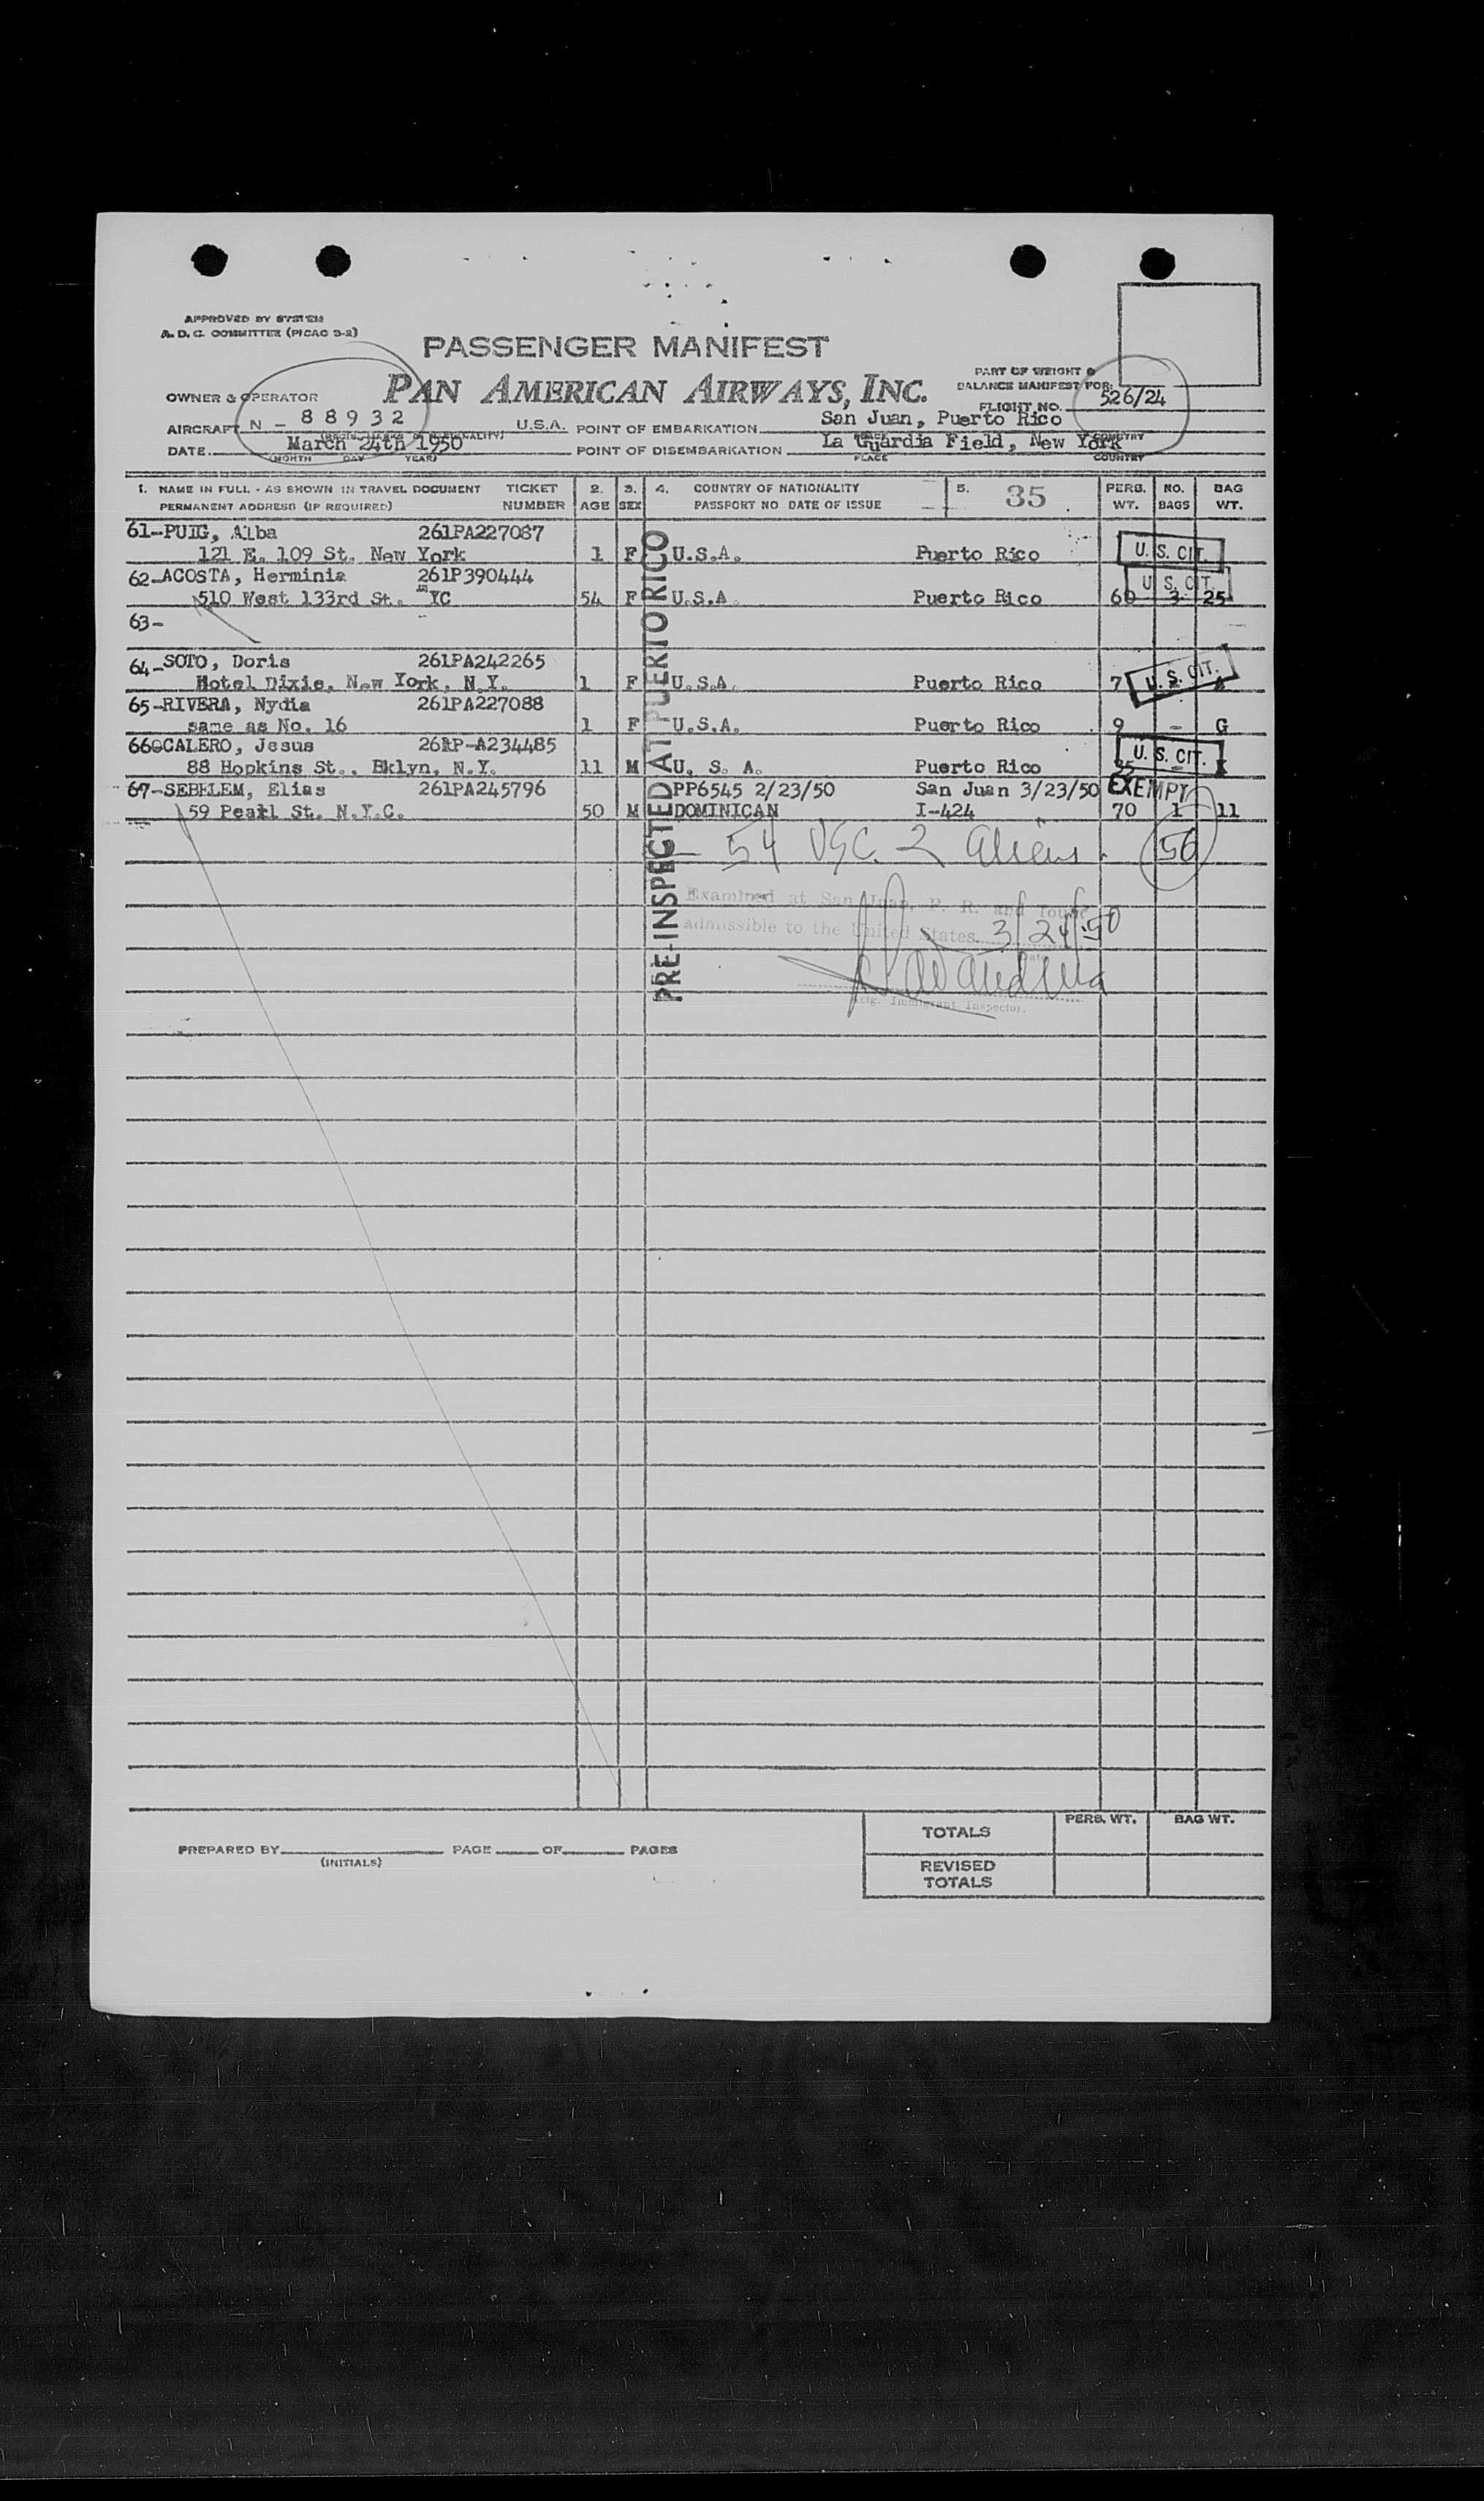 APPROVED BY SYSTEM
A. D. C. COMMITTEE (PICAO 3-2)
PASSENGER MANIFEST
PAN AMERICAN AIRWAYS, INC.
PART OF WEIGHT &
BALANCE MANIFEST FOR:
OWNER & OPERATOR
FLIGHT NO. 526/24
AIRCRAFT N - 88932 U.S.A. POINT OF EMBARKATION San Juan, Puerto Rico
DATE March 24th 1950 POINT OF DISEMBARKATION La Guardia Field, New York
(MONTH DAY YEAR) PLACE COUNTRY
1. NAME IN FULL - AS SHOWN IN TRAVEL DOCUMENT TICKET 2. 3. 4. COUNTRY OF NATIONALITY 5. 35 PERS. NO. BAG
PERMANENT ADDRESS (IF REQUIRED) NUMBER AGE SEX PASSPORT NO DATE OF ISSUE WT. BAGS WT.
61-PUIG, Alba 261PA227087
121 E. 109 St. New York 1 F U.S.A. Puerto Rico U. S. CIT.
62-ACOSTA, Herminia 261P390444 U. S. CIT.
510 West 133rd St. YC 54 F U.S.A. Puerto Rico 60 3 25
63-
64-SOTO, Doris 261PA242265
Hotel Dixie, New York, N.Y. 1 F U.S.A. Puerto Rico 7 U. S. CIT.
65-RIVERA, Nydia 261PA227088
same as No. 16 1 F U.S.A. Puerto Rico 9 - G
66-CALERO, Jesus 261P-A234485
88 Hopkins St., Bklyn, N.Y. 11 M U. S. A. Puerto Rico U. S. CIT.
67-SEBELEM, Elias 261PA245796 PP6545 2/23/50 San Juan 3/23/50 EXEMPT
59 Pearl St. N.Y.C. 50 M DOMINICAN I-424 70 1 11
PRE-INSPECTED AT PUERTO RICO
54 USC. 2 aliens. 56
Examined at San Juan, P. R. and found
admissible to the United States. 3/24/50
Date
Actg. Immigrant Inspector.
TOTALS PERS. WT. BAG WT.
PREPARED BY PAGE OF PAGES
(INITIALS)
REVISED
TOTALS